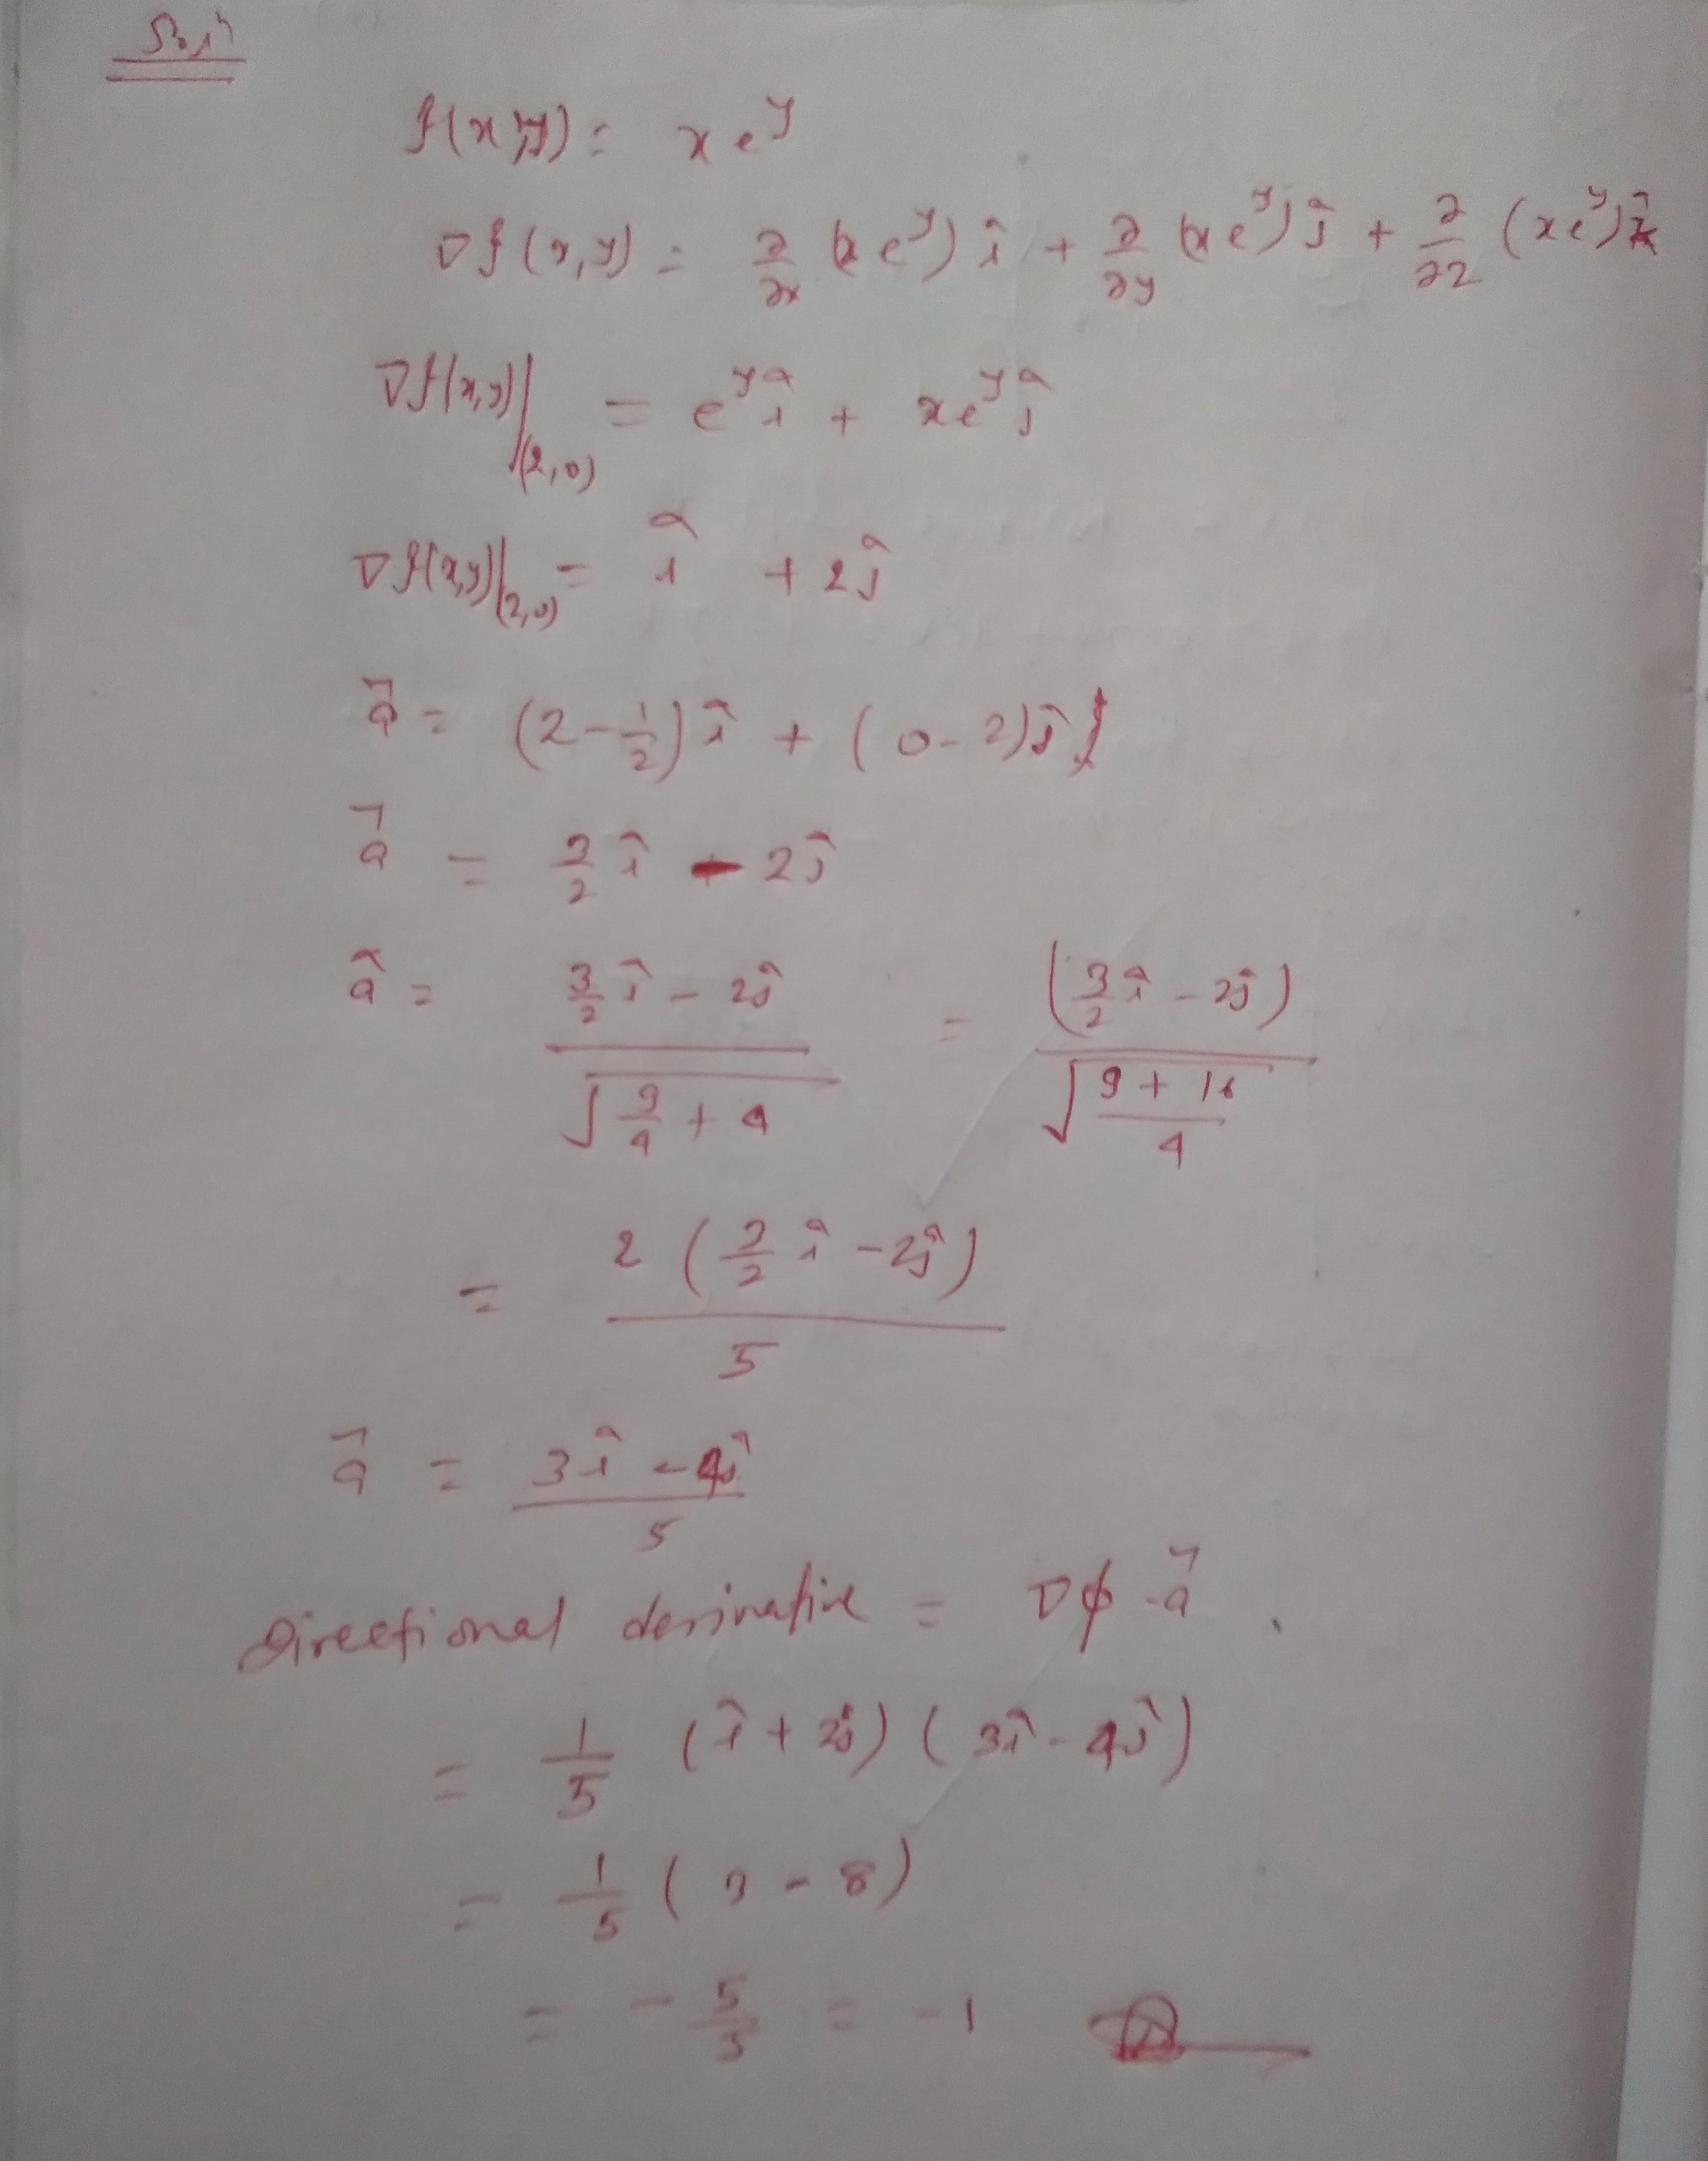 Solⁿ
f(x,y) = x e^y
∇f(x,y) = ∂/∂x (x e^y) î + ∂/∂y (x e^y) ĵ + ∂/∂z (x e^y) k̂
∇f(x,y)|(2,0) = e^y î + x e^y ĵ
∇f(x,y)|(2,0) = î + 2ĵ
a⃗ = (2 - 1/2) î + (0 - 2) ĵ
a⃗ = 3/2 î - 2ĵ
â = (3/2 î - 2ĵ) / √(9/4 + 4) = (3/2 î - 2ĵ) / √((9 + 16)/4)
= 2 (3/2 î - 2ĵ) / 5
a⃗ = (3î - 4ĵ) / 5
Directional derivative = ∇φ · a⃗ .
= 1/5 (î + 2ĵ) (3î - 4ĵ)
= 1/5 (3 - 8)
= - 5/5 = -1